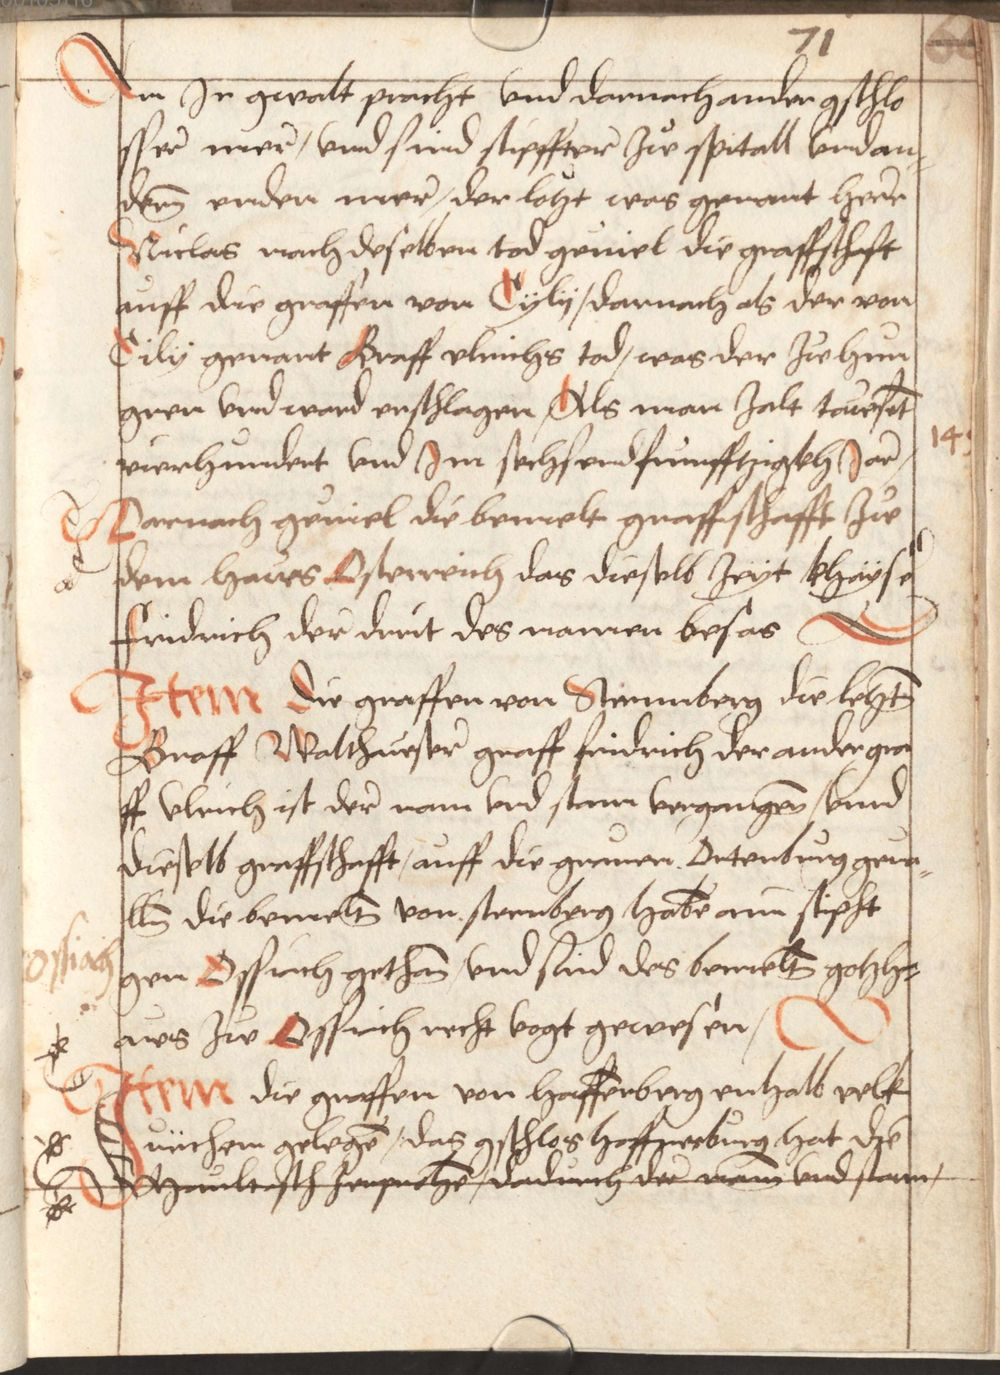 71
Am In gwalt pracht vnd darnach ander gschlo
sser mer / vnd sind stipffter zu spitall vnd an=
dern enden mer / der letzt was genant herr
Niclas nach deselben tod geuiel die graffschaft
auff die graffen von Cylij / darnach als der von
Cilij genant Graff vlrichs tod / was der zu hun
gren vnd ward erschlagen / Als man zalt tausent
vierhundert vnd Im sechsundfunfftzigkh Jar /
Darnach geuiel die bemelt graffschafft zu
dem haws Osterreich das dieselb zeyt khayser
fridrich der drit des namen besas
Item die graffen von Sternnberg die letztn
Graff Walthueser graff fridrich der ander gra
ff vlrich ist der nam vnd stam vergangen / vnnd
dieselb graffschafft / auff die grauen Ortenburg geua=
lln die bemeltn von sternberg habn ain stipft
gen Ossiach gethan / vnd sind des bemeltn gotzh=
aws zu Ossiach recht vogt gewesen /
ossiach
Item die graffen von haffnerberg enhalb velk
Juichem gelegn / das gschlos haffnerburg hat die
Maultasch zerprochn / dadurch der nam vnd stam /